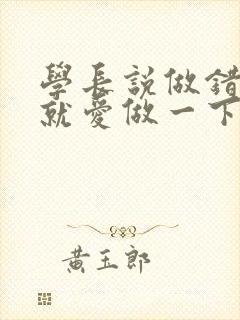 學長說做錯
就愛做一下
黃玉郎